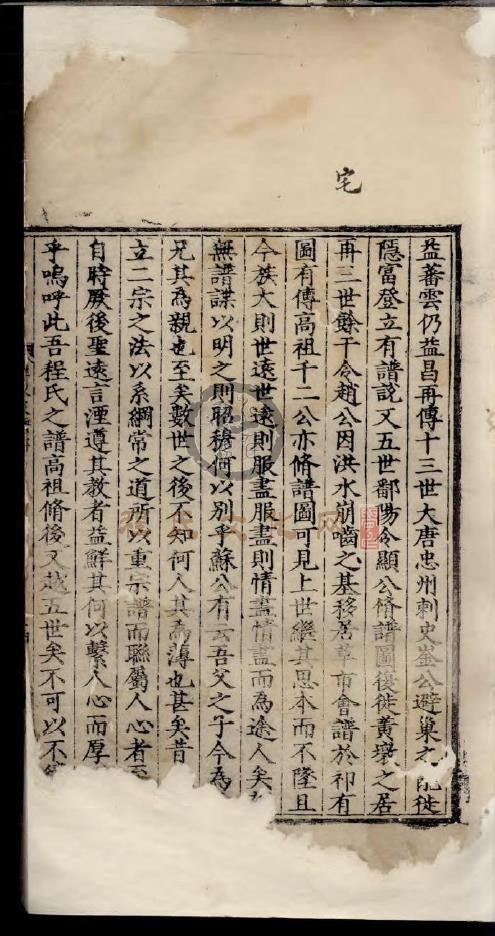 宅
益蕃雲仍益昌再傳十三世大唐忠州刺史崟公避巢之亂徙
隱富登立有譜說又五世鄱陽令顯公脩譜圖復徙黃墩之居
再三世餘干令趙公因洪水崩嚙之基移居草市會譜於祁有
圖有傳高祖千二公亦脩譜圖可見上世繼其思本而不墜且
今族大則世遠世遠則服盡服盡則情盡情盡而為途人矣
無譜諜以明之則昭穆何以別乎蘇公有云吾父之子今為
兄其為親也至矣數世之後不知何人其為薄也甚矣昔
立二宗之法以系綱常之道所以重宗譜而聯屬人心者至
自時厥後聖遠言湮遵其教者益鮮其何以繫人心而厚
乎嗚呼此吾程氏之譜高祖脩後又越五世矣不可以不